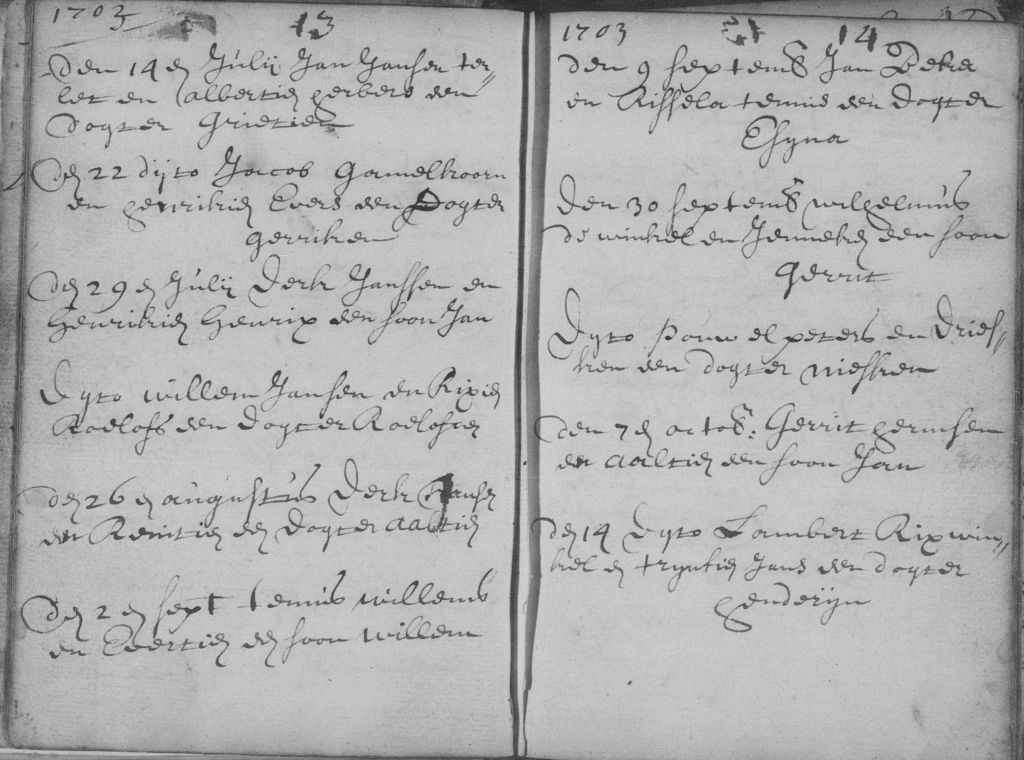 1703
13
den 14 en Julij Jan Jansen ter-
let en albertien gerbers een
dogter Grietien
den 22 dijto Jacob Gamelkoorn
en henrikien Evers een Dogter
gerriken
den 29 en Julij Derk Janssen en
Henrikien Henrix een soon Jan
Dyto willem Jansen en Rixien
Roelofs een dogter Roelofien
den 26 en augustus Derk Jansen
en Remtien een dogter aaltien
den 2 en sept teunis willems
en Evertien een soon willem
1703
14
den 9 septemb Jan
en teunis een dogter
Esyna
den 30 septemb wilhelmus
de winkel en Jenneken een soon
Gerrit
Dyto Pouwel peters en Dries-
ken een dogter niesken
den 7 en octob: Gerrit hermsen
en aaltien een soon Jan
den 14 Dyto Lambert Rixwin-
kel en tryntien Jans een dogter
henderijn